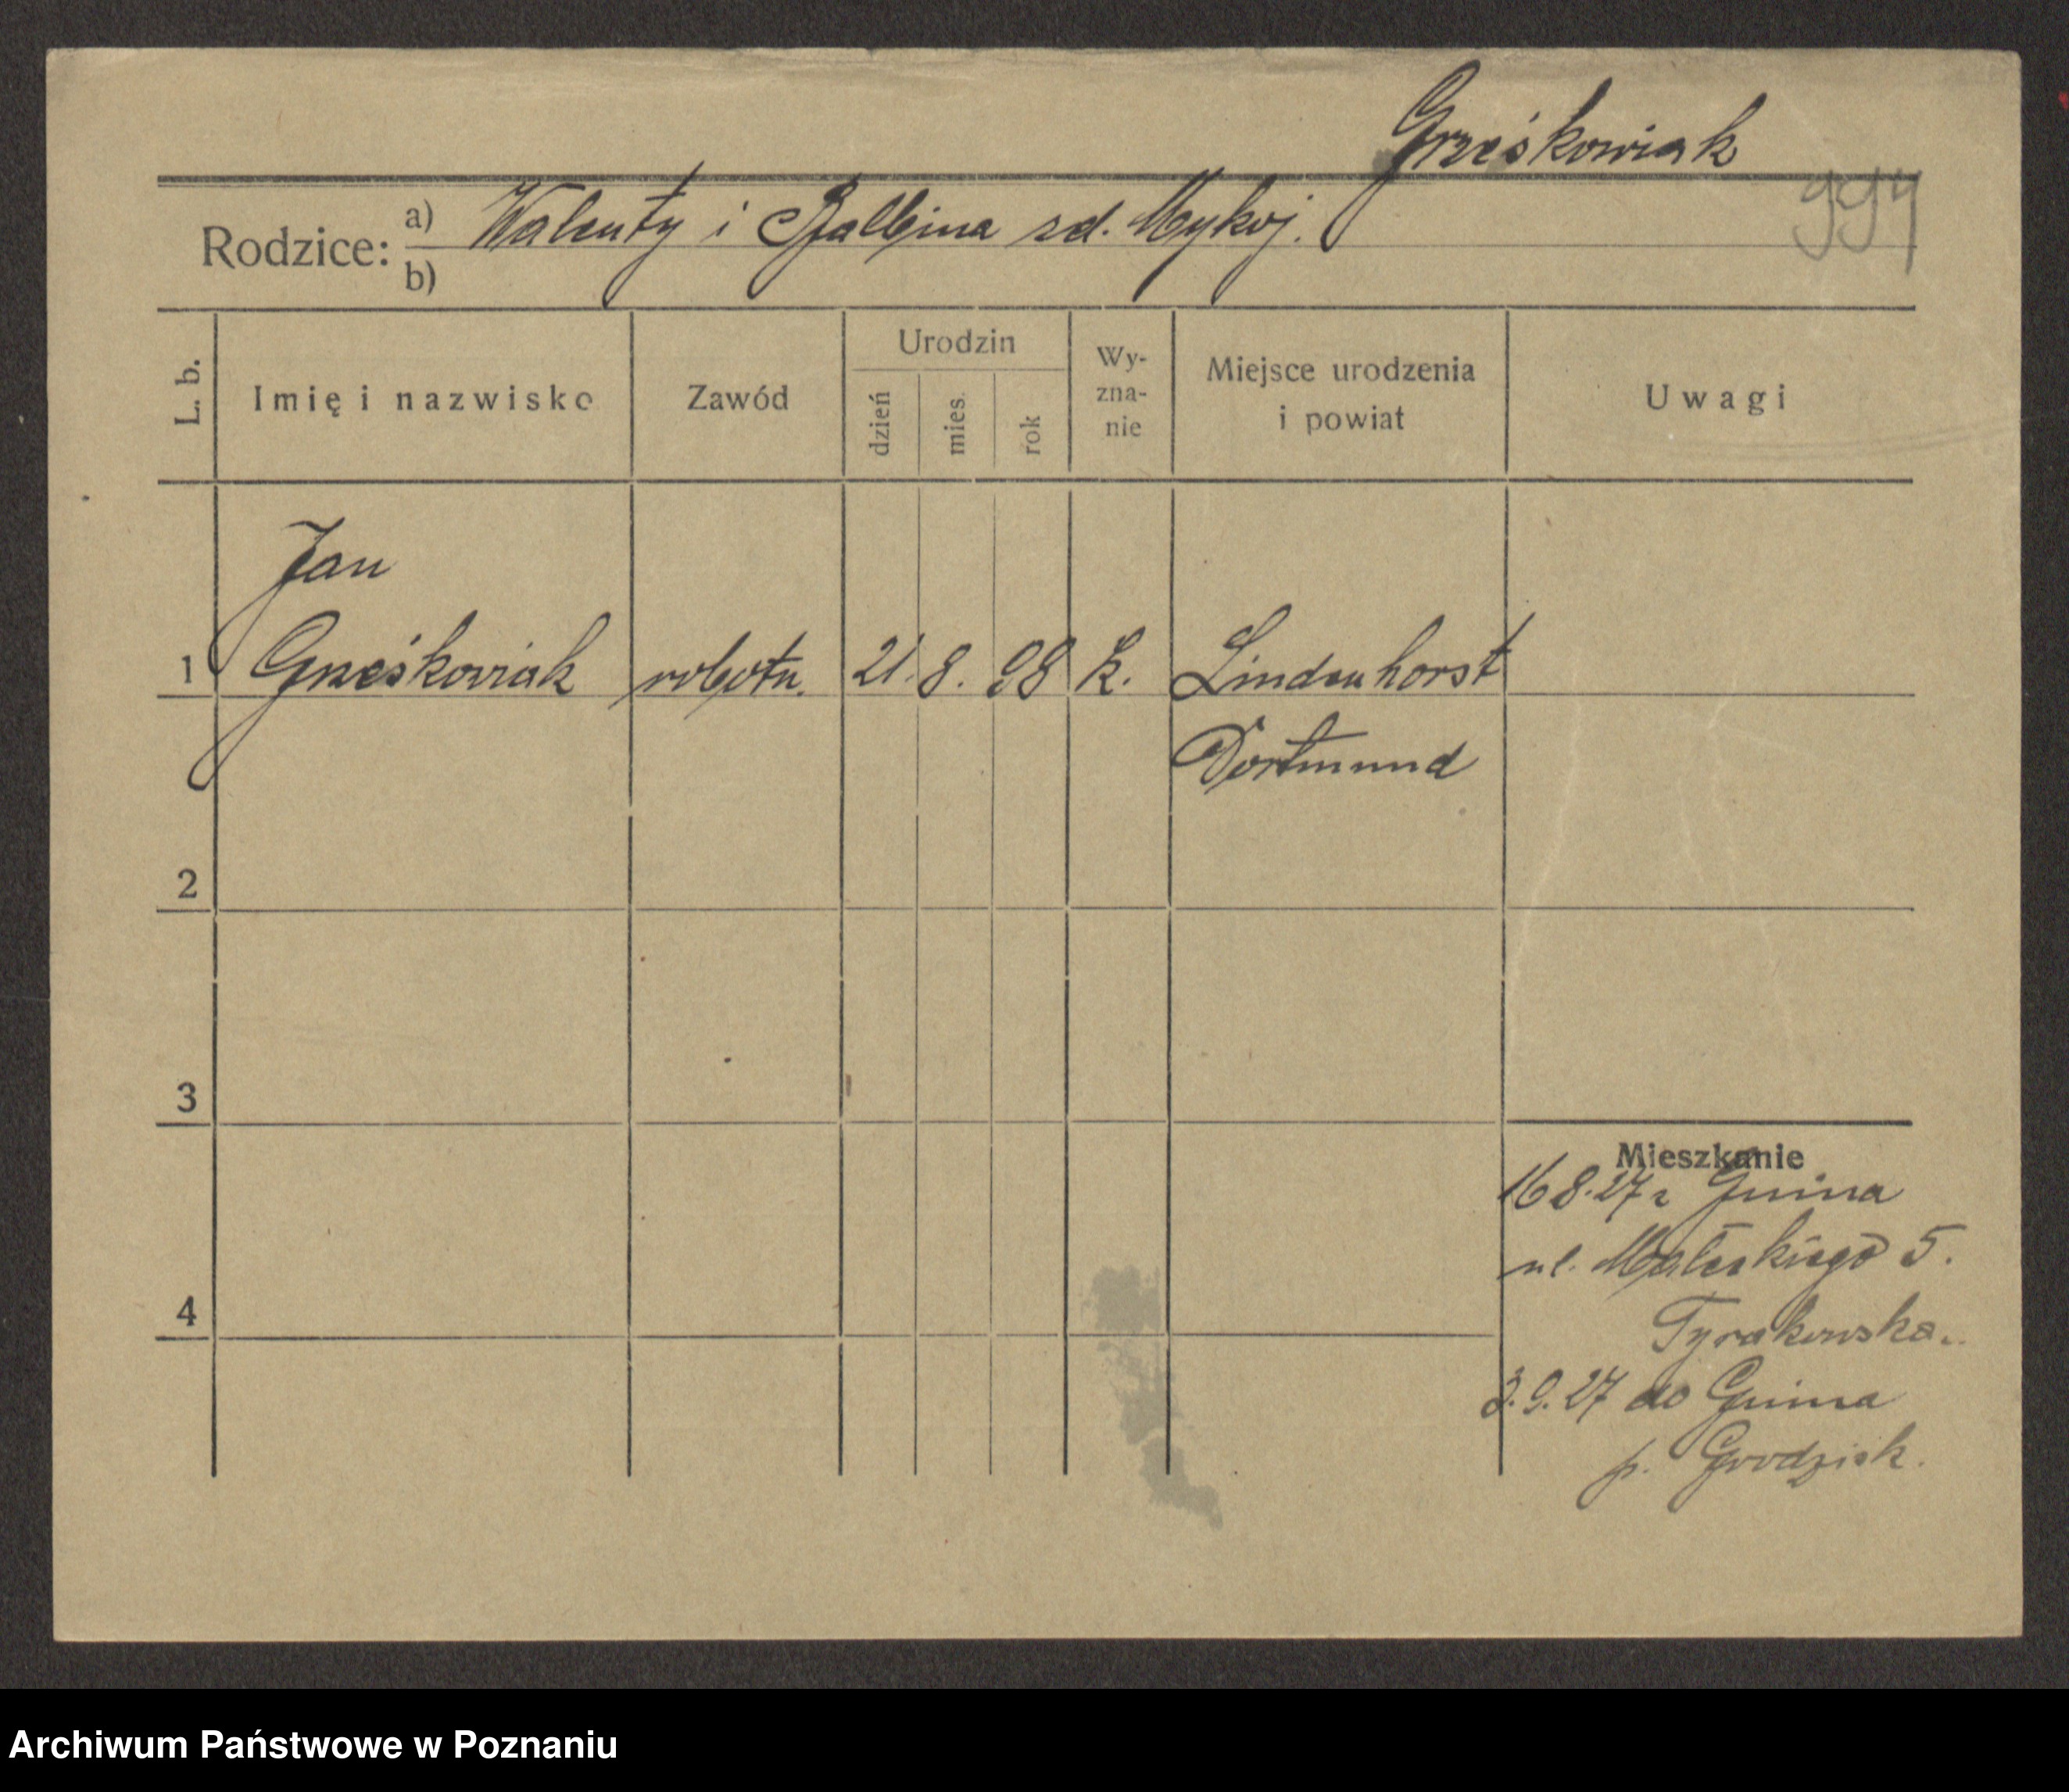 Grześkowiak
994
Rodzice: a) Walenty i Balbina zd. Mykoj.
b)
L. b.
Imię i nazwisko
Zawód
Urodzin
dzień
mies.
rok
Wy-
zna-
nie
Miejsce urodzenia
i powiat
Uwagi
Jan
1 Grześkowiak robotn. 21. 8. 98 k. Lindenhorst
Dortmund
2
3
4
Mieszkanie
16 8.27 z Gnina
ul. Małeckiego 5.
Tyrakowska.
3.9.27 do Gnina
p. Grodzisk.
Archiwum Państwowe w Poznaniu